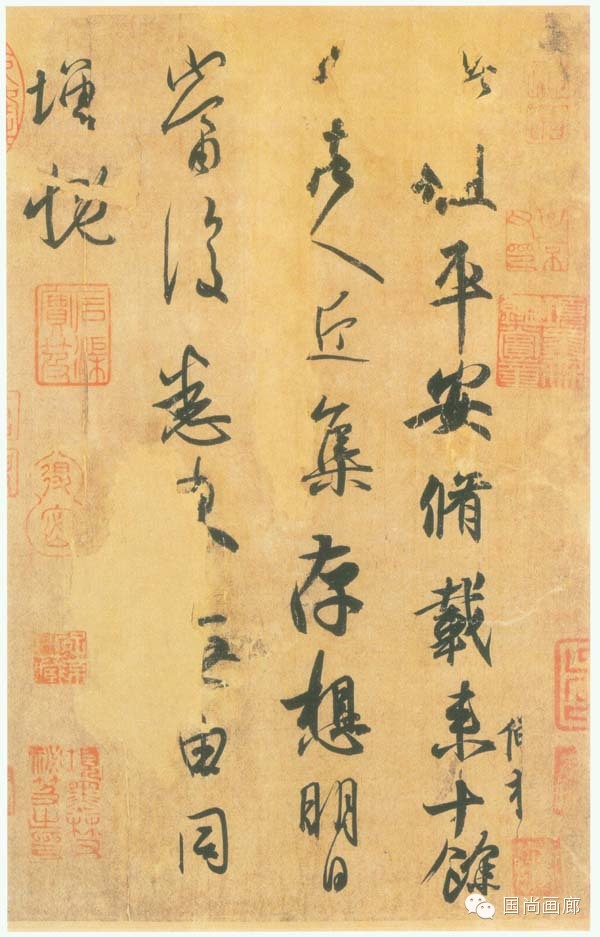 此粗平安脩載來十餘
日諸人近集存想明日
當復悉來無由同
增慨
国尚画廊